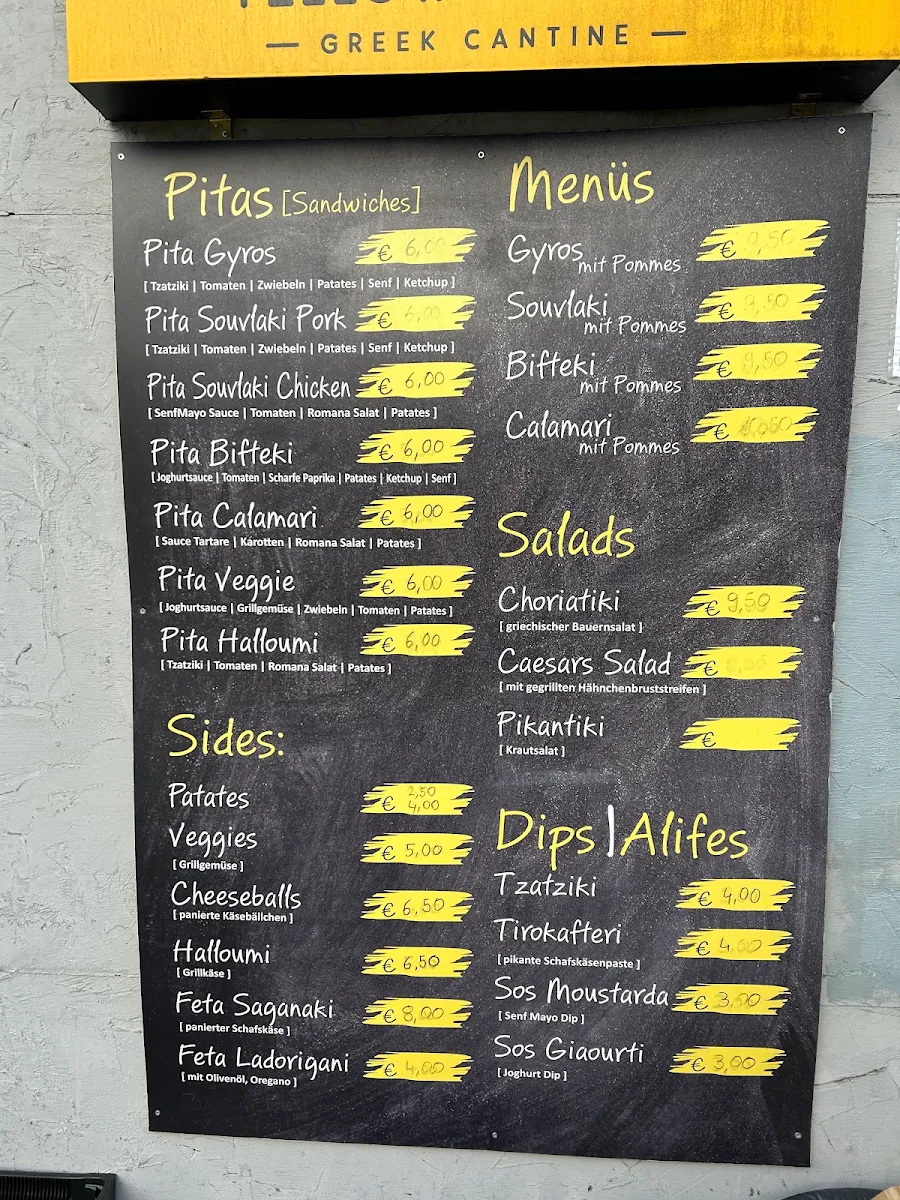 — GREEK CANTINE —
Pitas [Sandwiches]
Pita Gyros € 6,00
[ Tzatziki | Tomaten | Zwiebeln | Patates | Senf | Ketchup ]
Pita Souvlaki Pork € 6,00
[ Tzatziki | Tomaten | Zwiebeln | Patates | Senf | Ketchup ]
Pita Souvlaki Chicken € 6,00
[ SenfMayo Sauce | Tomaten | Romana Salat | Patates ]
Pita Bifteki € 6,00
[Joghurtsauce | Tomaten | Scharfe Paprika | Patates | Ketchup | Senf]
Pita Calamari € 6,00
[ Sauce Tartare | Karotten | Romana Salat | Patates ]
Pita Veggie € 6,00
[Joghurtsauce | Grillgemüse | Zwiebeln | Tomaten | Patates ]
Pita Halloumi € 6,00
[ Tzatziki | Tomaten | Romana Salat | Patates ]
Sides:
Patates € 2,50
4,00
Veggies € 5,00
[ Grillgemüse ]
Cheeseballs € 6,50
[ panierte Käsebällchen ]
Halloumi € 6,50
[ Grillkäse ]
Feta Saganaki € 8,00
[ panierter Schafskäse ]
Feta Ladorigani € 4,00
[ mit Olivenöl, Oregano ]
Menüs
Gyros € 9,50
mit Pommes
Souvlaki € 9,50
mit Pommes
Bifteki € 9,50
mit Pommes
Calamari €
mit Pommes
Salads
Choriatiki € 9,50
[ griechischer Bauernsalat ]
Caesars Salad €
[ mit gegrillten Hähnchenbruststreifen ]
Pikantiki €
[ Krautsalat ]
Dips|Alifes
Tzatziki € 4,00
Tirokafteri € 4,00
[ pikante Schafskäsenpaste ]
Sos Moustarda € 3,00
[ Senf Mayo Dip ]
Sos Giaourti € 3,00
[ Joghurt Dip ]